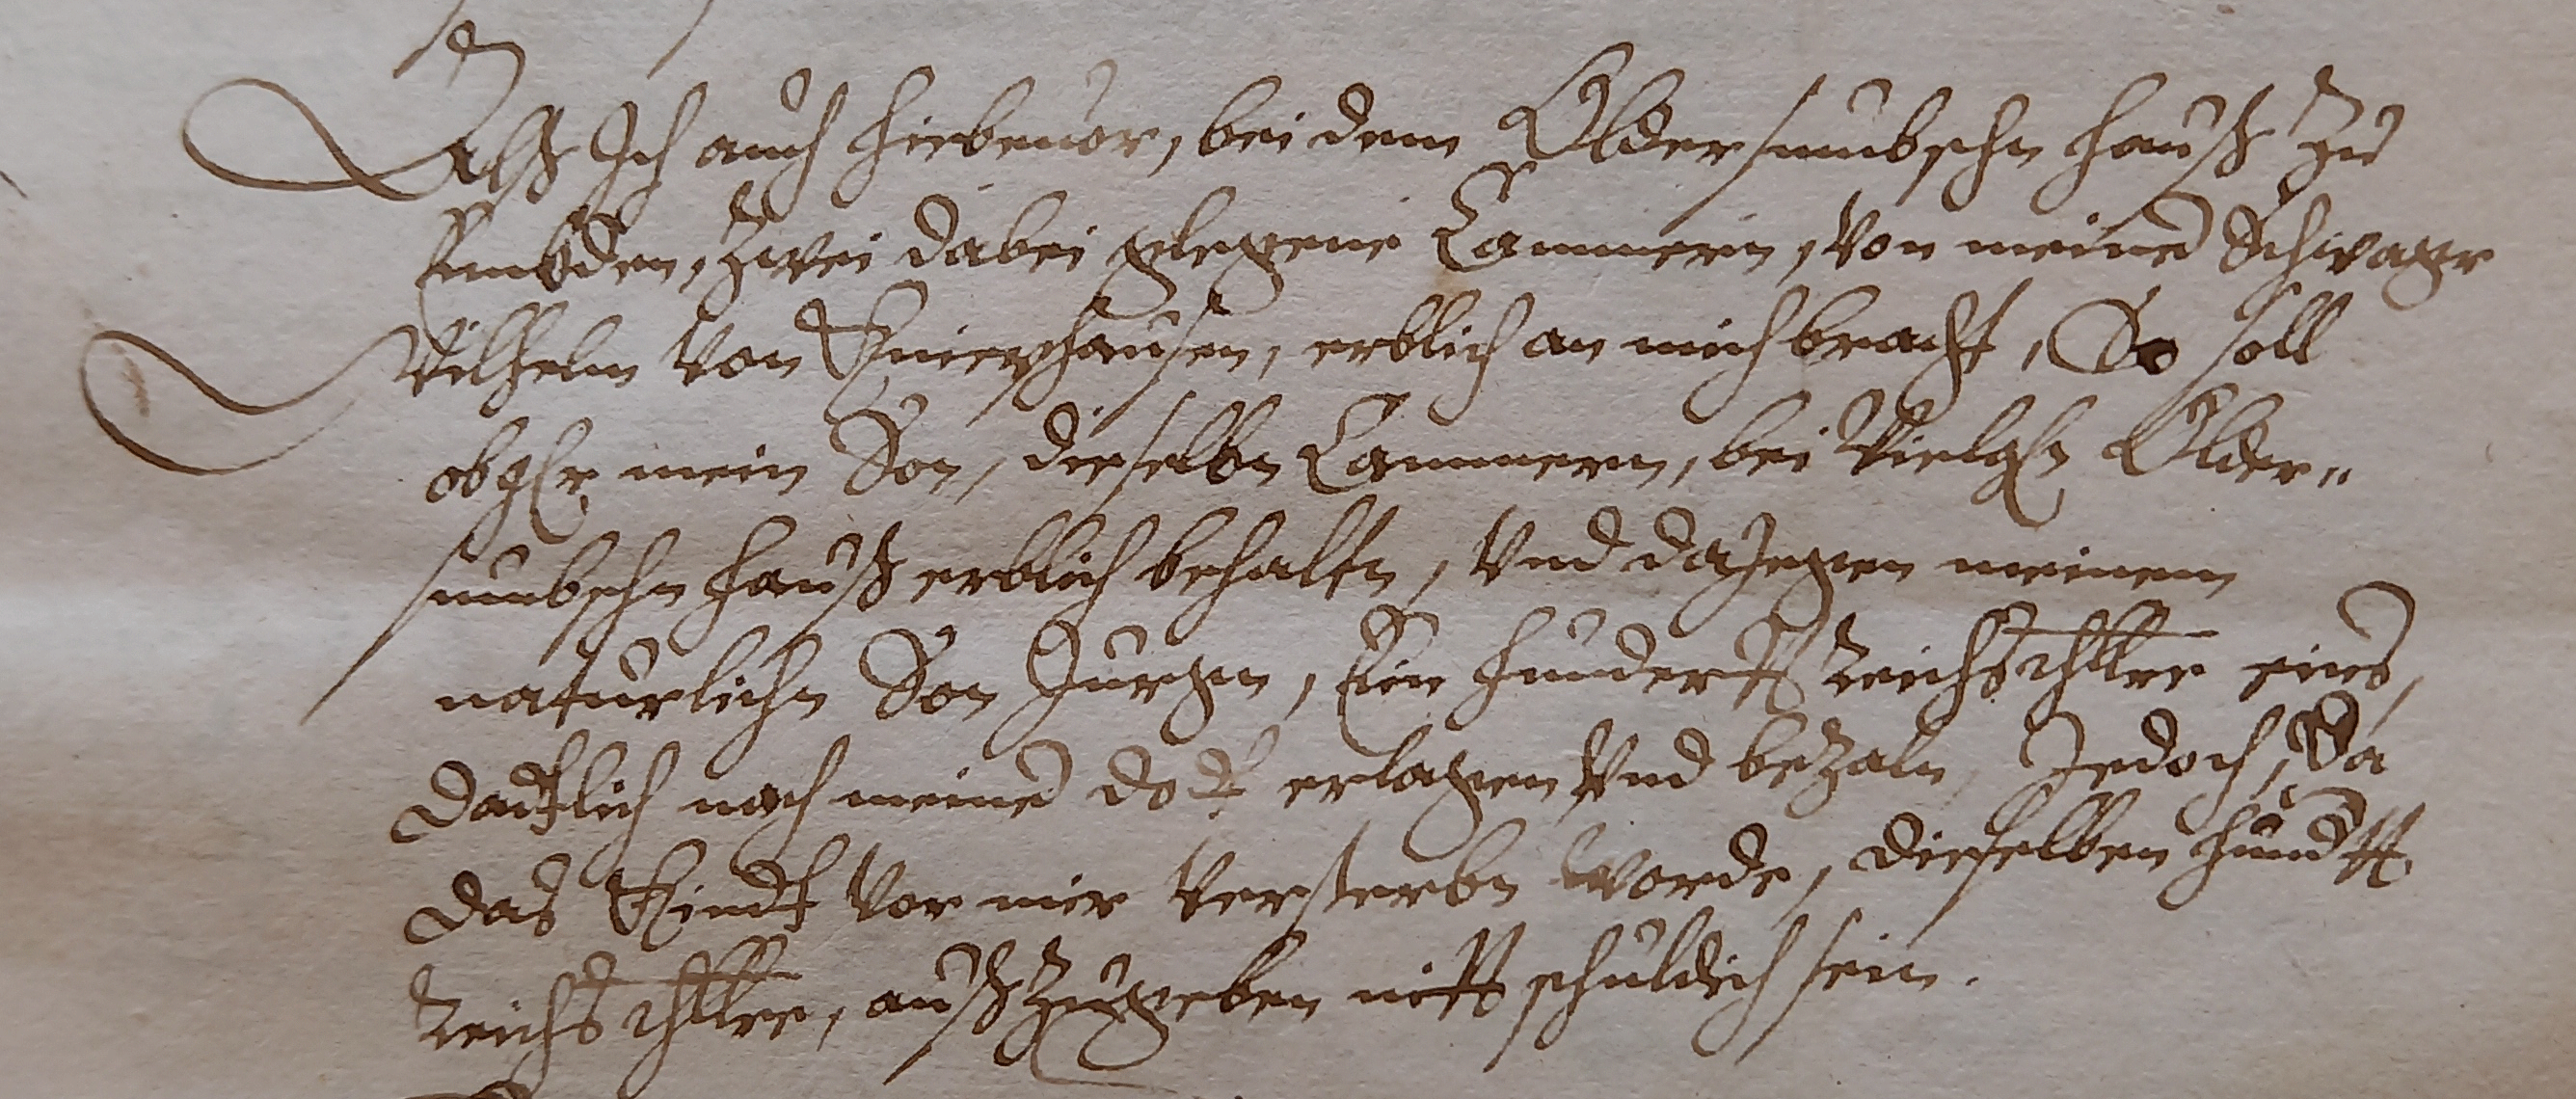 Alß Ich auch hiebeuor, bei dem Oldersumbschn hauß zu
Embden, zwei dabei glegene Cammern, von meinē Schwager
Wilhelm von Kniephausen, erblich an mich bracht, So soll
obglr mein Son, dieselbn Cammern, bei vielgln Older„
sumbschn hauß erblich behaltn, vnd dajegen meinem
naturlichn Son Jurgen, Ein hundertt Reichsthllr eins,
dadtlich nach meinē dodt erlagen vnd bezaln, Jedoch, Da
das Kindt vor mir versterbn worde, dieselben hundtt
Reichsthllr, außzugeben nitt schuldich sein.